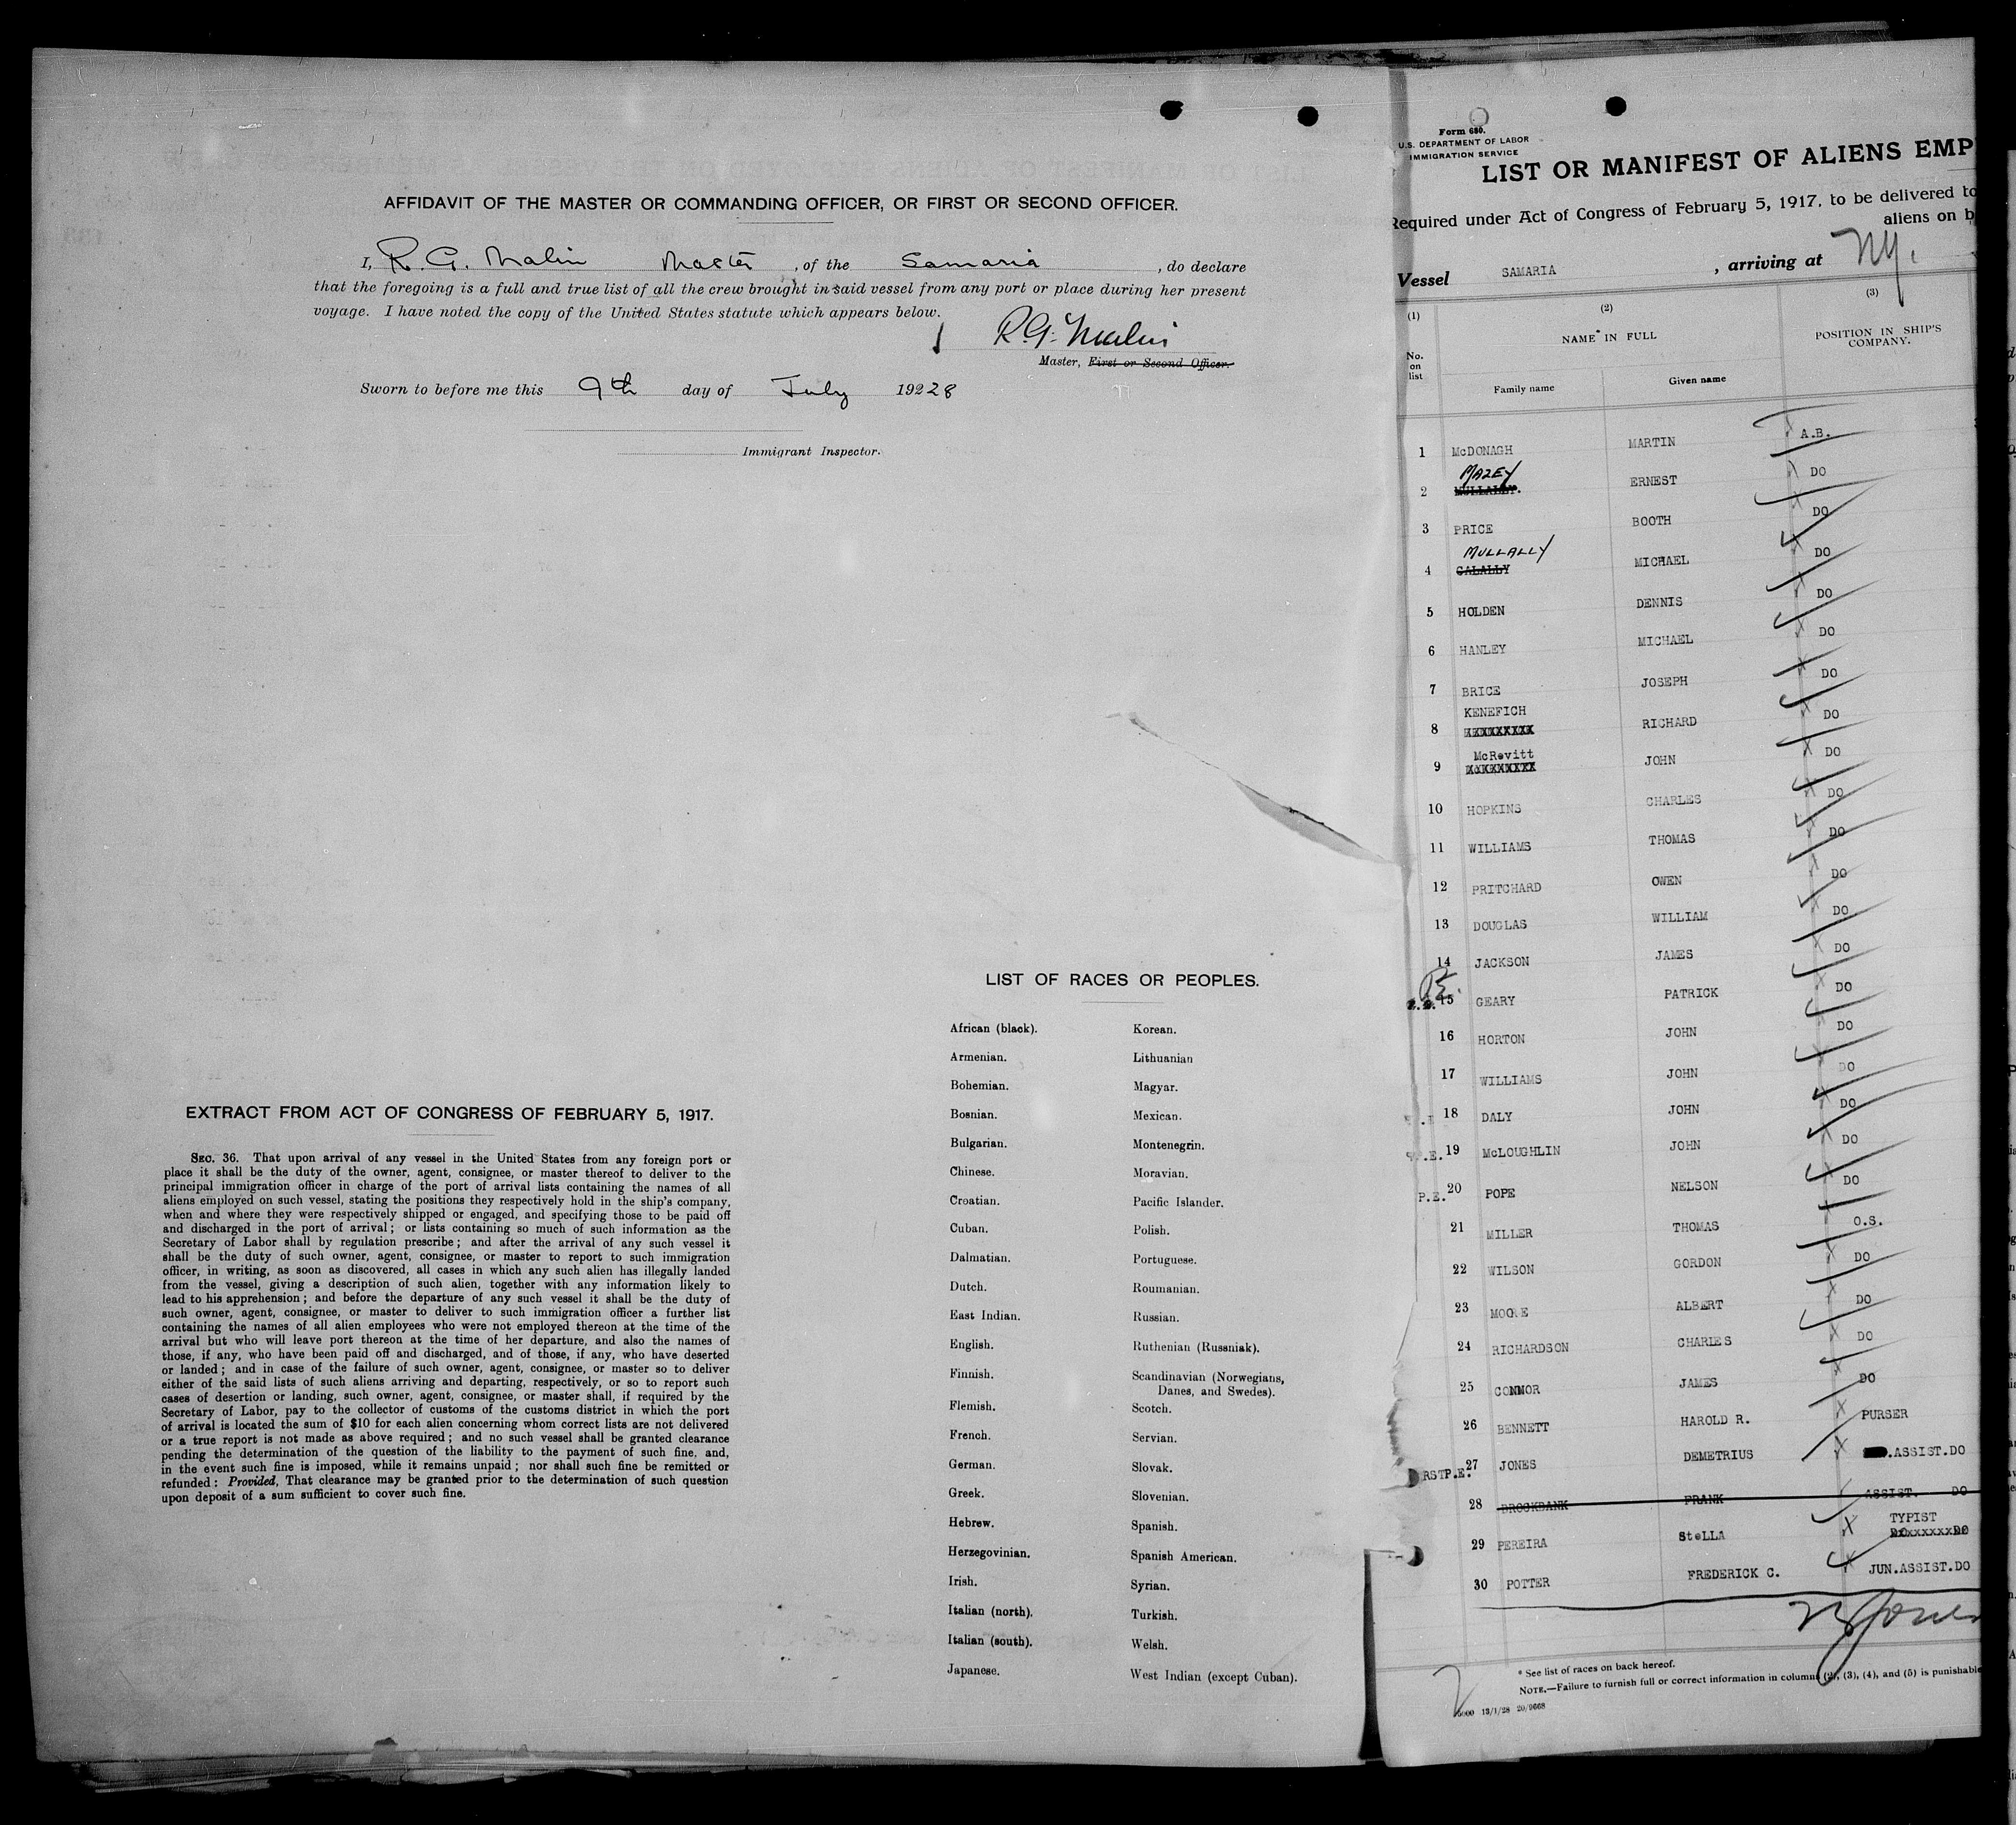 AFFIDAVIT OF THE MASTER OR COMMANDING OFFICER, OR FIRST OR SECOND OFFICER.
I, R. G. Malin Master , of the Samaria , do declare
that the foregoing is a full and true list of all the crew brought in said vessel from any port or place during her present
voyage. I have noted the copy of the United States statute which appears below.
R. G. Malin
Master, First or Second Officer.
Sworn to before me this 9th day of July 19228
Immigrant Inspector.
EXTRACT FROM ACT OF CONGRESS OF FEBRUARY 5, 1917.
SEC. 36. That upon arrival of any vessel in the United States from any foreign port or
place it shall be the duty of the owner, agent, consignee, or master thereof to deliver to the
principal immigration officer in charge of the port of arrival lists containing the names of all
aliens employed on such vessel, stating the positions they respectively hold in the ship's company,
when and where they were respectively shipped or engaged, and specifying those to be paid off
and discharged in the port of arrival; or lists containing so much of such information as the
Secretary of Labor shall by regulation prescribe; and after the arrival of any such vessel it
shall be the duty of such owner, agent, consignee, or master to report to such immigration
officer, in writing, as soon as discovered, all cases in which any such alien has illegally landed
from the vessel, giving a description of such alien, together with any information likely to
lead to his apprehension; and before the departure of any such vessel it shall be the duty of
such owner, agent, consignee, or master to deliver to such immigration officer a further list
containing the names of all alien employees who were not employed thereon at the time of the
arrival but who will leave port thereon at the time of her departure, and also the names of
those, if any, who have been paid off and discharged, and of those, if any, who have deserted
or landed; and in case of the failure of such owner, agent, consignee, or master so to deliver
either of the said lists of such aliens arriving and departing, respectively, or so to report such
cases of desertion or landing, such owner, agent, consignee, or master shall, if required by the
Secretary of Labor, pay to the collector of customs of the customs district in which the port
of arrival is located the sum of $10 for each alien concerning whom correct lists are not delivered
or a true report is not made as above required; and no such vessel shall be granted clearance
pending the determination of the question of the liability to the payment of such fine, and,
in the event such fine is imposed, while it remains unpaid; nor shall such fine be remitted or
refunded: Provided, That clearance may be granted prior to the determination of such question
upon deposit of a sum sufficient to cover such fine.
LIST OF RACES OR PEOPLES.
African (black). Korean.
Armenian. Lithuanian
Bohemian. Magyar.
Bosnian. Mexican.
Bulgarian. Montenegrin.
Chinese. Moravian.
Croatian. Pacific Islander.
Cuban. Polish.
Dalmatian. Portuguese.
Dutch. Roumanian.
East Indian. Russian.
English. Ruthenian (Russniak).
Finnish. Scandinavian (Norwegians,
Danes, and Swedes).
Flemish. Scotch.
French. Servian.
German. Slovak.
Greek. Slovenian.
Hebrew. Spanish.
Herzegovinian. Spanish American.
Irish. Syrian.
Italian (north). Turkish.
Italian (south). Welsh.
Japanese. West Indian (except Cuban).
Form 680.
U.S. DEPARTMENT OF LABOR
IMMIGRATION SERVICE
LIST OR MANIFEST OF ALIENS EMP
Required under Act of Congress of February 5, 1917, to be delivered to
aliens on b
Vessel SAMARIA , arriving at N.Y.
(1) (2) (3)
No. on list NAME* IN FULL POSITION IN SHIP'S COMPANY.
Family name Given name
1 McDONAGH MARTIN A.B.
MAZEY
2 MULLALLY. ERNEST DO
3 PRICE BOOTH DO
MULLALLY
4 CALALLY MICHAEL DO
5 HOLDEN DENNIS DO
6 HANLEY MICHAEL DO
7 BRICE JOSEPH DO
KENEFICH
8 RICHARD DO
McRevitt
9 JOHN DO
10 HOPKINS CHARLES DO
11 WILLIAMS THOMAS DO
12 PRITCHARD OWEN DO
13 DOUGLAS WILLIAM DO
14 JACKSON JAMES DO
15 GEARY PATRICK DO
16 HORTON JOHN DO
17 WILLIAMS JOHN DO
18 DALY JOHN DO
19 McLOUGHLIN JOHN DO
P.E. 20 POPE NELSON DO
21 MILLER THOMAS O.S.
22 WILSON GORDON DO
23 MOORE ALBERT DO
24 RICHARDSON CHARLES DO
25 CONNOR JAMES DO
26 BENNETT HAROLD R. PURSER
P.E. 27 JONES DEMETRIUS .ASSIST.DO
28 BROCKBANK FRANK ASSIST. DO
29 PEREIRA SteLLA TYPIST
30 POTTER FREDERICK C. JUN.ASSIST.DO
* See list of races on back hereof.
NOTE.—Failure to furnish full or correct information in columns (2), (3), (4), and (5) is punishable
5000 13/1/28 20/9668